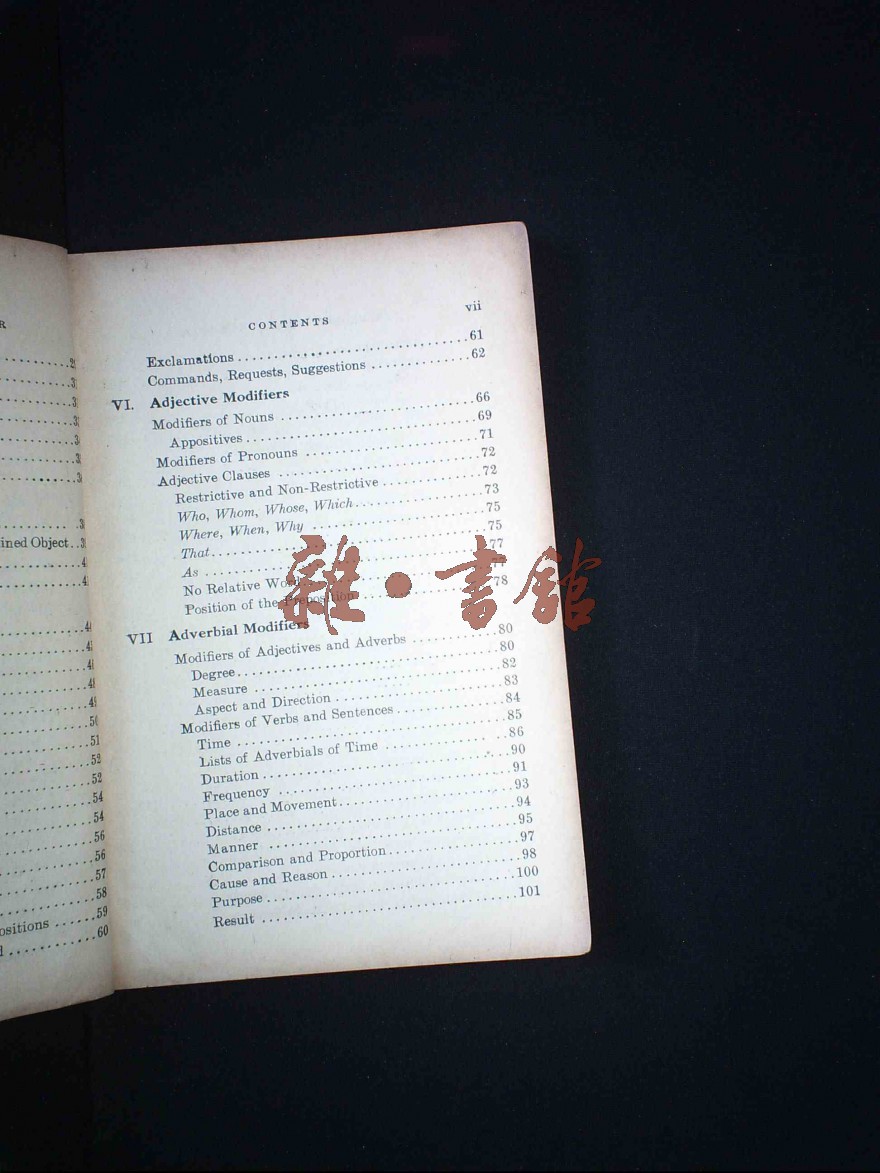 R
ined Object
50
51
52
52
54
54
56
56
57
58
ositions ......59
60
vii
CONTENTS
Exclamations ..... 61
Commands, Requests, Suggestions ..... 62
VI. Adjective Modifiers
Modifiers of Nouns ..... 66
Appositives ..... 69
Modifiers of Pronouns ..... 71
Adjective Clauses ..... 72
Restrictive and Non-Restrictive ..... 72
Who, Whom, Whose, Which ..... 73
Where, When, Why ..... 75
That ..... 75
As ..... 77
No Relative Word ..... 77
Position of the Preposition ..... 78
VII Adverbial Modifiers
Modifiers of Adjectives and Adverbs ..... 80
Degree ..... 80
Measure ..... 82
Aspect and Direction ..... 83
Modifiers of Verbs and Sentences ..... 84
Time ..... 85
Lists of Adverbials of Time ..... 86
Duration ..... 90
Frequency ..... 91
Place and Movement ..... 93
Distance ..... 94
Manner ..... 95
Comparison and Proportion ..... 97
Cause and Reason ..... 98
Purpose ..... 100
Result ..... 101
雜·書館